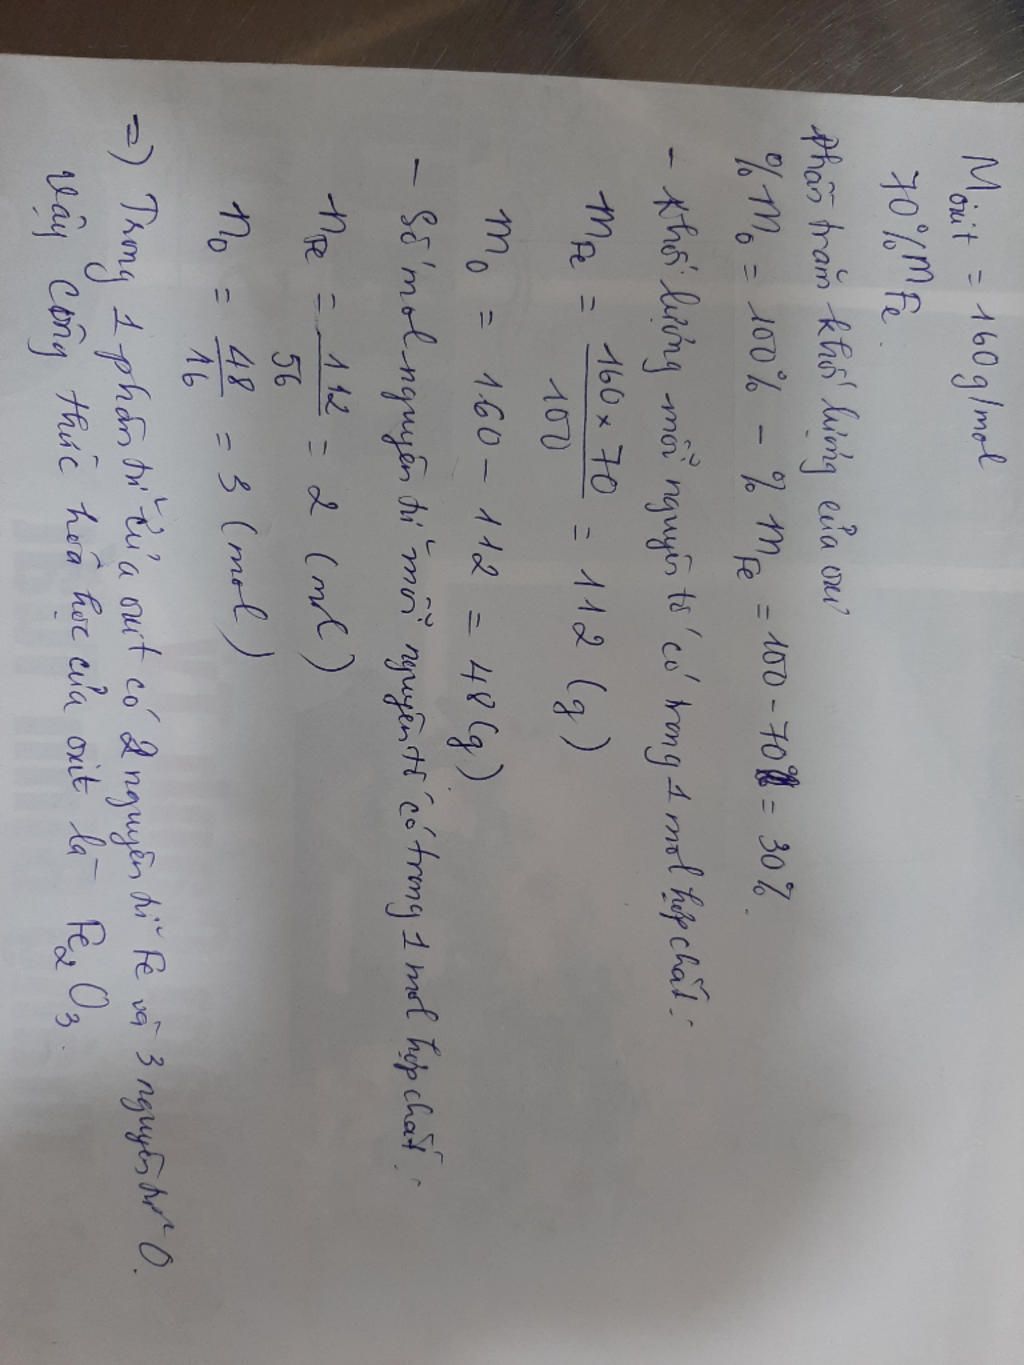 M oxit = 160g/mol
70% mFe.
Phần trăm khối lượng của oxi
% mO = 100% - % mFe = 100 - 70% = 30%.
- Khối lượng mỗi nguyên tố có trong 1 mol hợp chất:
mFe = 160 x 70 / 100 = 112 (g)
mO = 160 - 112 = 48 (g)
- Số mol nguyên tử mỗi nguyên tố có trong 1 mol hợp chất:
nFe = 112 / 56 = 2 (mol)
nO = 48 / 16 = 3 (mol)
=> Trong 1 phân tử của oxit có 2 nguyên tử Fe và 3 nguyên tử O.
Vậy công thức hóa học của oxit là Fe2O3.